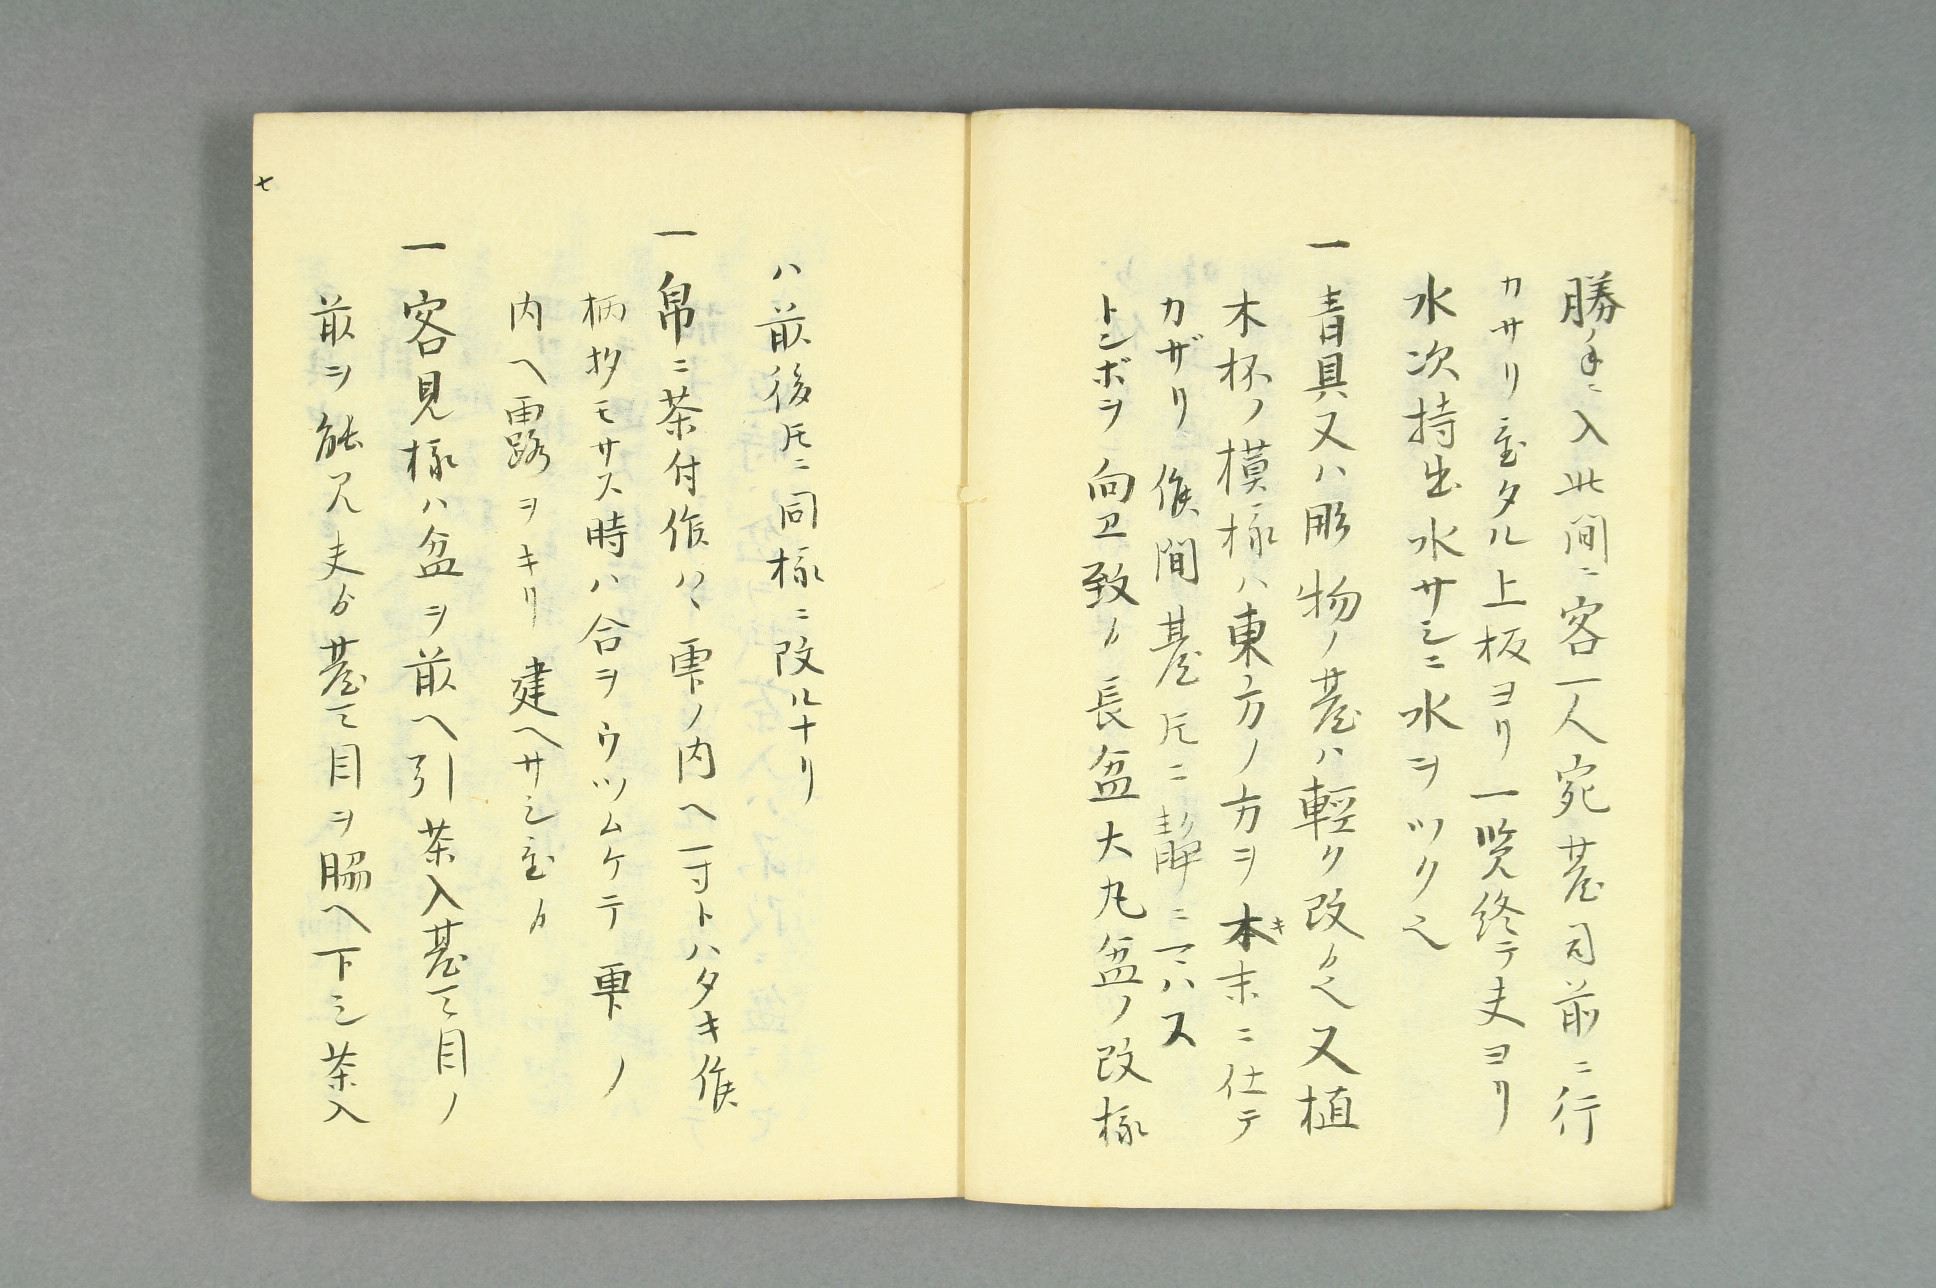 勝ノ手ニ入此間ニ客一人宛臺司前ニ行
カサリ置タル上板ヨリ一覧終テ夫ヨリ
水次持出水サシニ水ヲツクヘ
一 青具又ハ彫物ノ臺ハ輕ク改ヘ又植
木杯ノ模様ハ東方ノ方ヲ本キ末ニ仕テ
カザリ候間臺氏ニ静ニマハス
トンボヲ向ヱ致ス長盆大丸盆ノ改様
ハ前後氏ニ同様ニ改ルナリ
一 帛ニ茶付候ハヽ雫ノ内ヘ一寸トハタキ候
柄杓モサス時ハ合ヲウツムケテ雫ノ
内ヘ露ヲキリ建ヘサシ置
一 客見様ハ盆ヲ前ヘ引茶入臺天目ノ
前ヲ能見夫ゟ臺天目ヲ脇ヘ下シ茶入
七